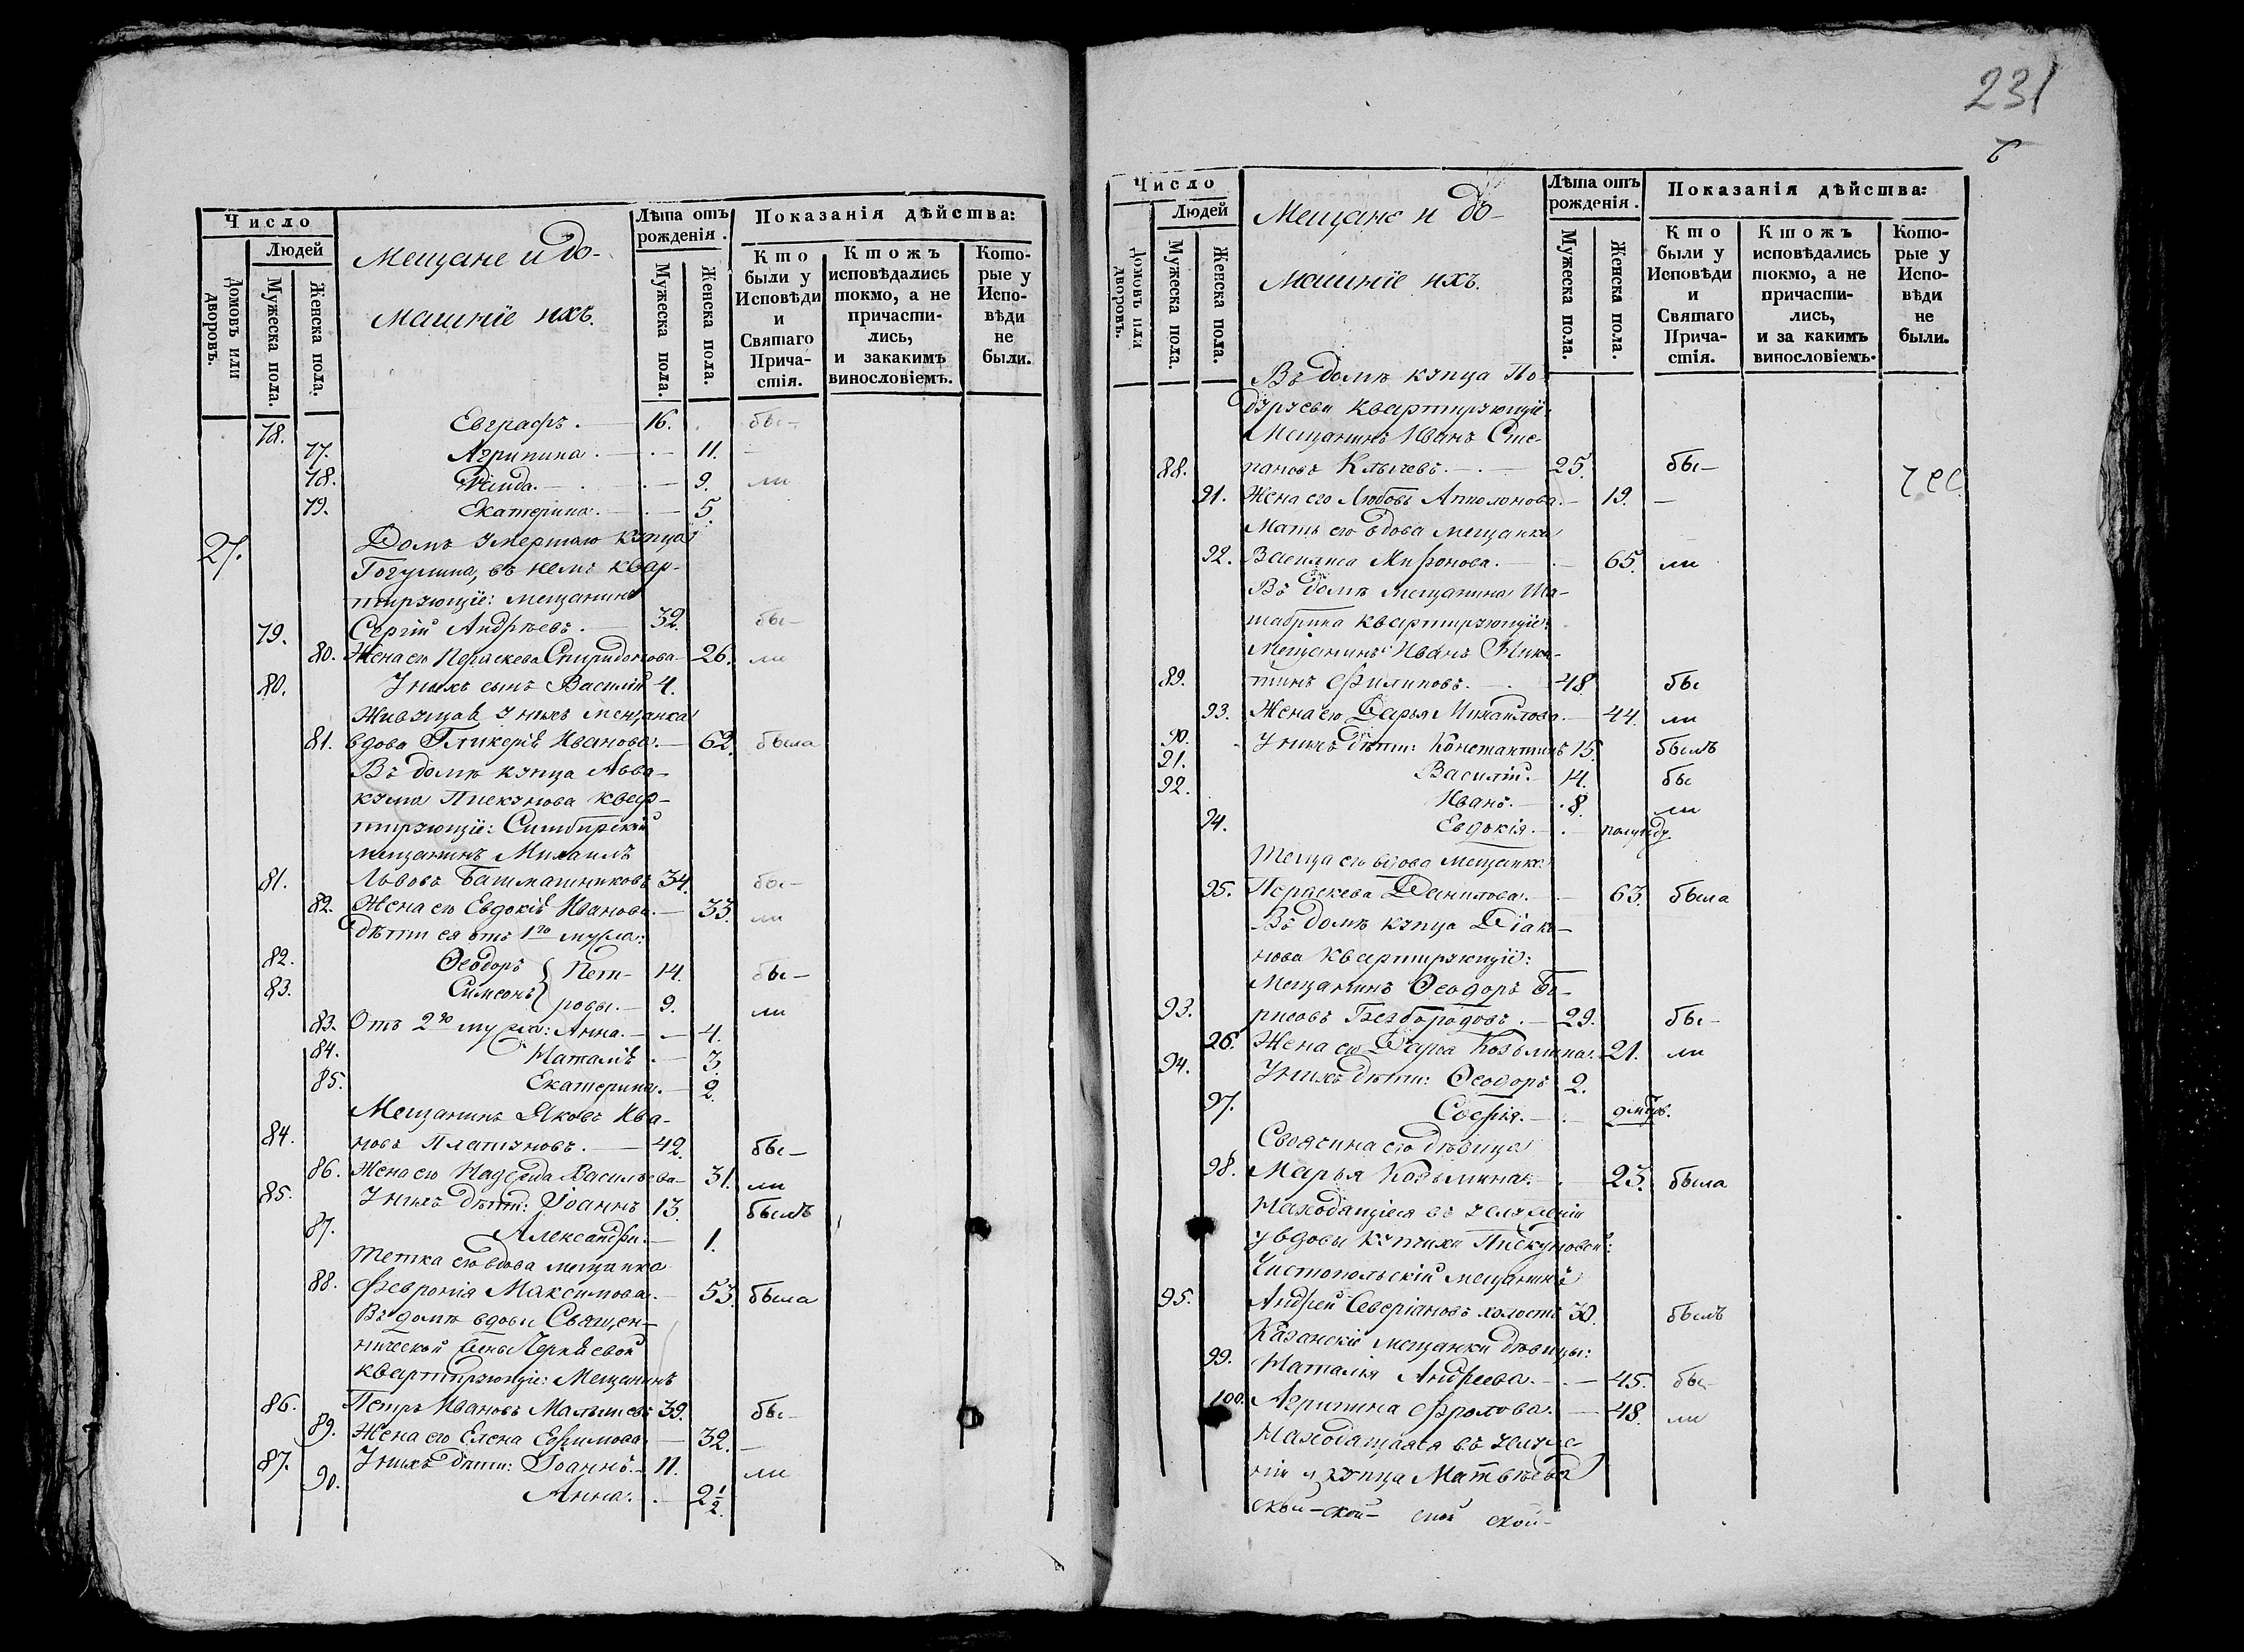 Число
Людей
Домовъ или дворовъ.
Мужеска пола.
Женска пола.
Мещане и до-
машніе ихъ.
Лѣта отъ рожденія.
Мужеска пола.
Женска пола.
Показанія дѣйства:
Кто были у Исповѣди и Святаго Прича-стія.
Ктожъ исповѣдались токмо, а не причасти-лись, и закакимъ винословіемъ.
Кото-рые у Испо-вѣди не были.
78. Евграфъ. 16. бы-
77. Агрипина. 11. -
78. 9. ли
79. Екатерина. 5.
27. Домъ умершаго купца
въ немъ квар-
тирующіе: мещанинъ
79. Сергій Андреевъ. 32. бы-
80. Жена его Параскева Спиридонова 26. ли
80. У нихъ сынъ Василій 4.
Живущая у нихъ мещанка
81. вдова Гликерія Иванова. 62. была
Въ домѣ купца Авва-
кума Пискунова квар-
тирующіе: Симбирскій
мещанинъ Михаилъ
81. Львовъ Башмашниковъ 34. бы-
82. Жена его Евдокія Иванова. 33. ли
Дѣти ея отъ 1го мужа:
82. Ѳеодоръ } Пет- 14. бы-
83. Симеонъ } ровы. 9. ли
83. Отъ 2го мужа: Анна. 4.
84. Наталія 3.
85. Екатерина. 2.
Мещанинъ Яковъ Ива-
84. новъ Платуновъ. 42. бы-
86. Жена его Надежда Васильева 31. ли
85. У нихъ дѣти: Іоаннъ 13. былъ
87. Александра. 1.
Тетка его вдова мещанка
88. Февронія Максимова. 53. была
Въ домѣ вдовы Священ-
нической
квартирующіе: Мещанинъ
86. Петръ Ивановъ Малышевъ 39. бы-
89. Жена его Елена Ефимова 32. -
87. У нихъ дѣти: Іоаннъ. 11. ли
90. Анна. 2½.
231
Число
Людей
Домовъ или дворовъ.
Мужеска пола.
Женска пола.
Мещане и до-
машніе ихъ.
Лѣта отъ рожденія.
Мужеска пола.
Женска пола.
Показанія дѣйства:
Кто были у Исповѣди и Святаго Прича-стія.
Ктожъ исповѣдались токмо, а не причасти-лись, и за какимъ винословіемъ.
Кото-рые у Испо-вѣди не были.
Въ домѣ купца По-
дуруева квартирующіе:
Мещанинъ Иванъ Сте-
88. пановъ Клычевъ. 25. бы-
91. Жена его Любовь Апполонова. 19. -
Мать его вдова мещанка
92. Василиса Миронова. 65. ли
Въ домѣ мещанина Ша-
табрина квартирующіе:
Мещанинъ Иванъ Ники-
89. тинъ Филиповъ. 48. бы
93. Жена его Дарья Михайлова. 44. ли
90. У нихъ дѣти: Константинъ 15. былъ
91. Василій. 14. бы
92. Иванъ. 8. ли
94. Евдокія. полугоду
Теща его вдова мещанка
95. Параскева Данилова. 63. была
Въ домѣ купца Діако-
нова квартирующіе:
Мещанинъ Ѳеодоръ Бо-
93. рисовъ Безбородовъ. 29. бы-
96. Жена его Дарья Козьмина. 21. ли
94. У нихъ дѣти: Ѳеодоръ 2.
97. Софія.
Своячина его дѣвица
98. Марья Козьмина. 23. была
Находящіеся въ услуженіи
у вдовы купчихи Пискуновой:
Чистопольскій мещанинъ
95. Андрей Северіановъ холостъ 30. былъ
Казанскіе мещанки дѣвицы:
99. Наталія Андреева. 45. бы-
100. Агрипина Фролова. 48. ли
Находящаяся въ услуже-
ніи у купца Матвѣева